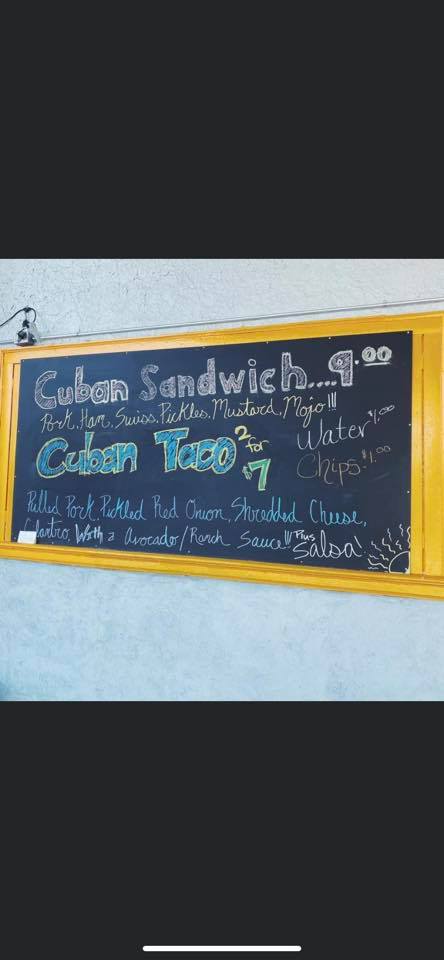 Cuban Sandwich....9.00
Pork, Ham, Swiss, Pickles, Mustard, Mojo!!!
Cuban Taco 2 for $7
Water $1.00
Chips $1.00
Pulled Pork, Pickled Red Onion, Shredded Cheese,
Cilantro, With a Avocado/Ranch Sauce!!! Plus Salsa!